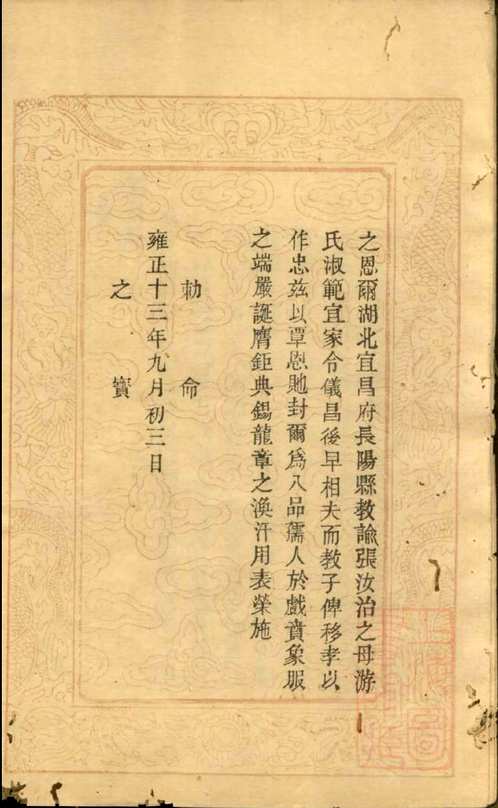 之恩爾湖北宜昌府長陽縣教諭張汝治之母游
氏淑範宜家令儀昌後早相夫而教子俾移孝以
作忠茲以覃恩貤封爾爲八品孺人於戲賁象服
之端嚴誕膺鉅典錫龍章之渙汗用表榮施
勅命
雍正十三年九月初三日
之寶